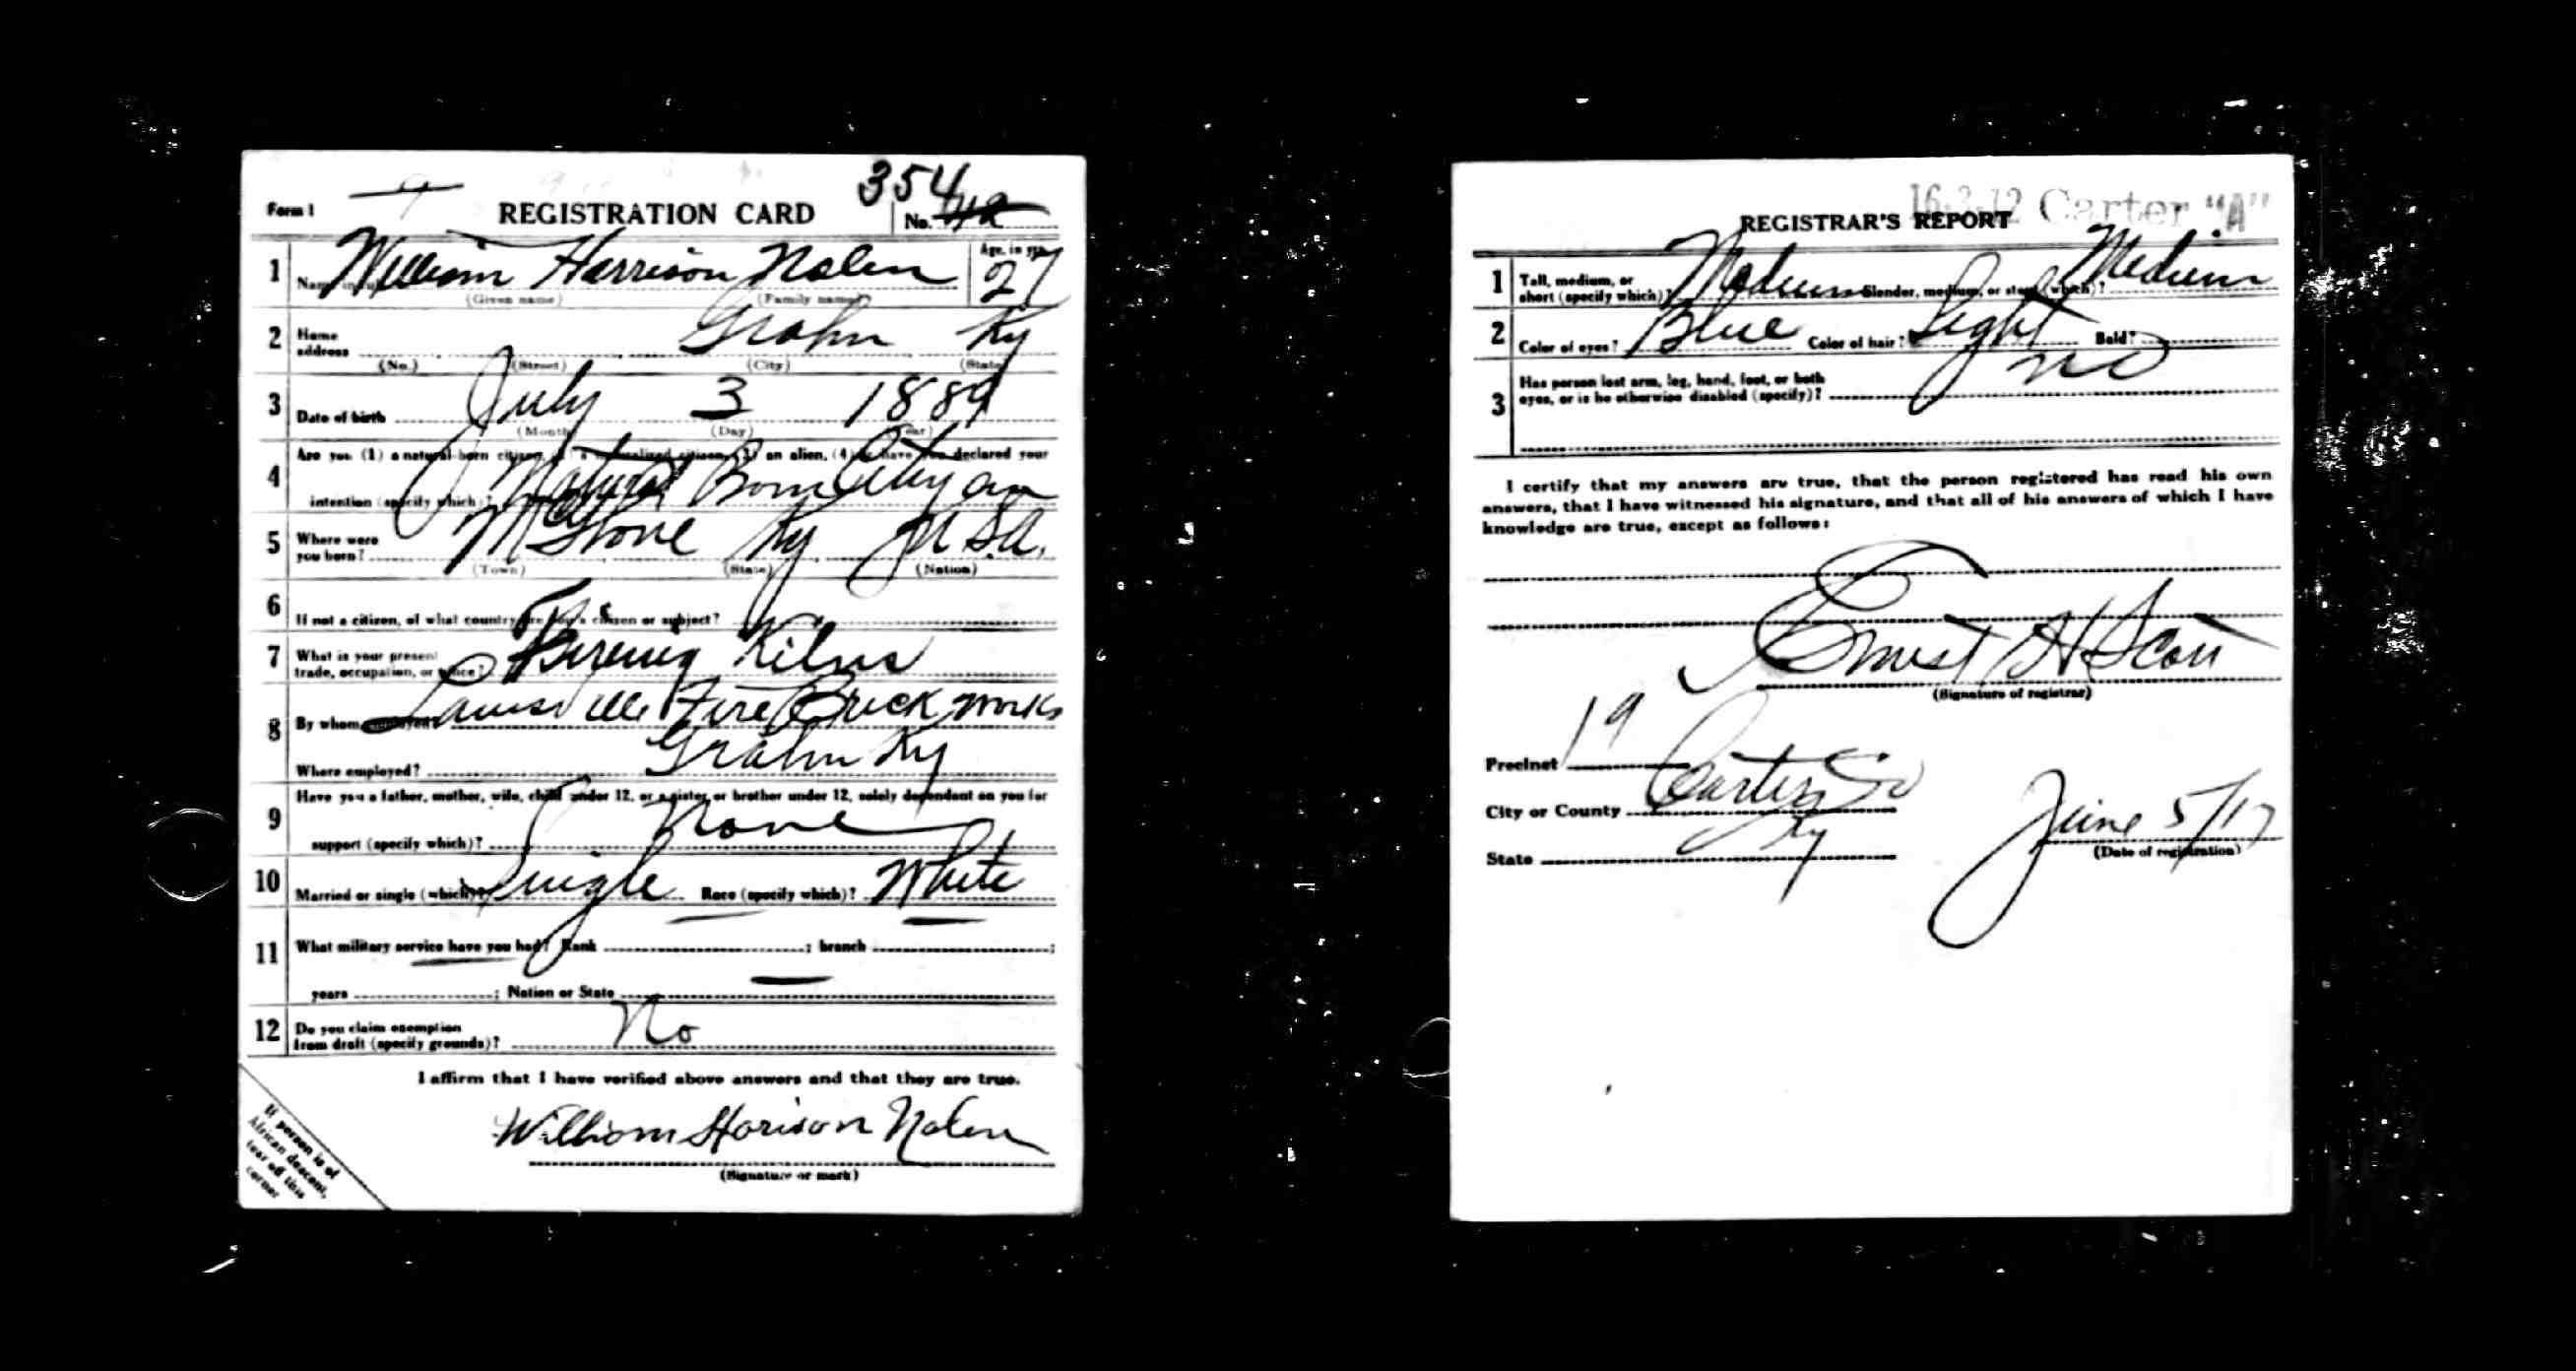 Form 1
REGISTRATION CARD
354
No. 42
1 Name in full William Harrison Nolen Age, in yrs. 27
(Given name) (Family name)
2 Home address Grahn Ky
(No.) (Street) (City) (State)
3 Date of birth July 3 1889
(Month) (Day) (Year)
4 Are you (1) a natural-born citizen, (2) a naturalized citizen, (3) an alien, (4) or have you declared your
intention (specify which)? Natural Born
5 Where were you born? Ky U.S.A.
(Town) (State) (Nation)
6 If not a citizen, of what country are you a citizen or subject?
7 What is your present trade, occupation, or office? Kilns
8 By whom employed? Louisville Fire Brick Works
Where employed? Grahn Ky
9 Have you a father, mother, wife, child under 12, or a sister or brother under 12, solely dependent on you for
support (specify which)? None
10 Married or single (which)? Single Race (specify which)? White
11 What military service have you had? Rank ; branch ;
years ; Nation or State
12 Do you claim exemption from draft (specify grounds)? No
I affirm that I have verified above answers and that they are true.
William Horison Nolen
(Signature or mark)
If person is of
African descent,
tear off this
corner
16-3-12 Carter "A"
REGISTRAR'S REPORT
1 Tall, medium, or short (specify which)? Medium Slender, medium, or stout (which)? Medium
2 Color of eyes? Blue Color of hair? Light Bald?
3 Has person lost arm, leg, hand, foot, or both eyes, or is he otherwise disabled (specify)? no
I certify that my answers are true, that the person registered has read his own
answers, that I have witnessed his signature, and that all of his answers of which I have
knowledge are true, except as follows:
Ernest H Scott
(Signature of registrar)
Precinct 19
City or County Carter Co
State Ky
June 5/17
(Date of registration)